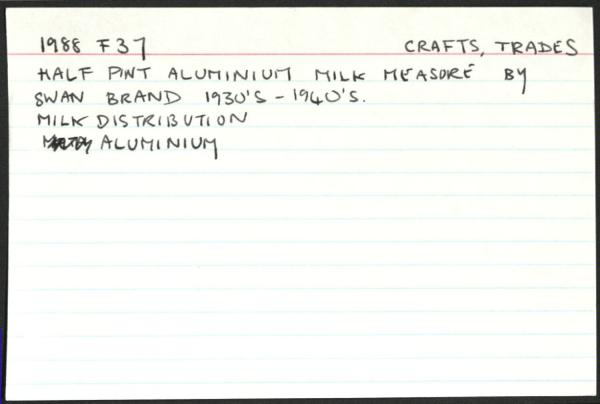 1988 F37 CRAFTS, TRADES
HALF PINT ALUMINIUM MILK MEASURE BY
SWAN BRAND 1930'S - 1940'S.
MILK DISTRIBUTION
ALUMINIUM